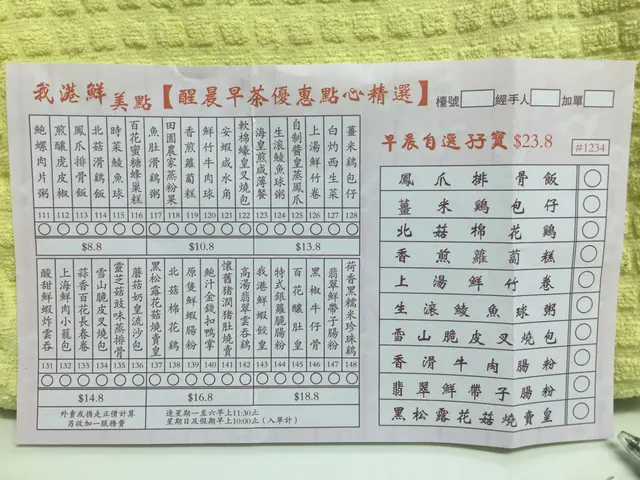 我港鮮美點【醒晨早茶優惠點心精選】
檯號 經手人 加單
鮑螺肉片粥 111
煎釀虎皮椒 112
鳳爪排骨飯 113
北菇滑鷄飯 114
時菜鯪魚球 115
百花蜜糖蜂巢糕 116
魚肚滑鷄粥 117
田園農家蒸粉果 118
香煎蘿蔔糕 119
鮮竹牛肉球 120
安蝦咸水角 121
軟棉蠔皇叉燒包 122
海皇煎咸薄餐 123
生滾鯪魚球粥 124
自制醬皇蒸鳳爪 125
上湯鮮竹卷 126
白灼西生菜 127
薑米鷄包仔 128
$8.8 $10.8 $13.8
酸甜鮮蝦炸雲吞 131
上海鮮肉小籠包 132
蒜香百花長春卷 133
雪山脆皮叉燒包 134
靈芝菇豉味蒸排骨 135
蘑菇奶皇流沙包 136
黑松露花菇燒賣皇 137
北菇棉花鷄 138
原隻鮮蝦腸粉 139
鮑汁金錢扣鴨掌 140
懷舊豬潤豬肚燒賣 141
高湯翡翠雲吞鷄 142
我港鮮蝦餃皇 143
特式銀蘿脆腸粉 144
百花釀肚皇 145
黑椒牛仔骨 146
翡翠鮮帶子腸粉 147
荷香黑糯米珍珠鷄 148
$14.8 $16.8 $18.8
外賣或攜走正價計算
另收加一服務費
逢星期一至六早上11:30止
星期日及假期早上10:00止（入單計）
早晨自選孖寶 $23.8 #1234
鳳爪排骨飯
薑米鷄包仔
北菇棉花鷄
香煎蘿蔔糕
上湯鮮竹卷
生滾鯪魚球粥
雪山脆皮叉燒包
香滑牛肉腸粉
翡翠鮮帶子腸粉
黑松露花菇燒賣皇